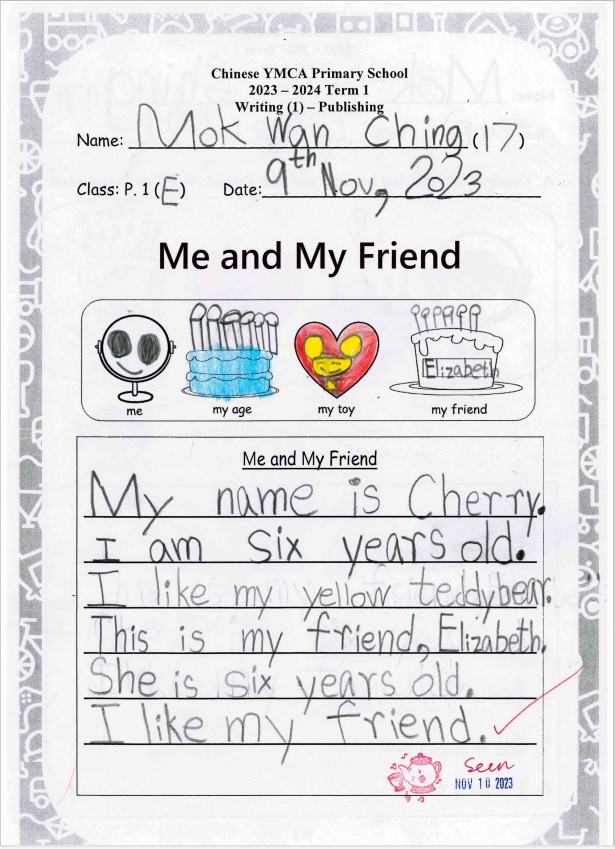 Chinese YMCA Primary School
2023 – 2024 Term 1
Writing (1) – Publishing
Name: Mok Wan Ching (17)
Class: P. 1 (E) Date: 9th Nov, 2023
Me and My Friend
Elizabeth
me my age my toy my friend
Me and My Friend
My name is Cherry.
I am six years old.
I like my yellow teddybear.
This is my friend, Elizabeth.
She is six years old.
I like my friend.
Seen
NOV 10 2023